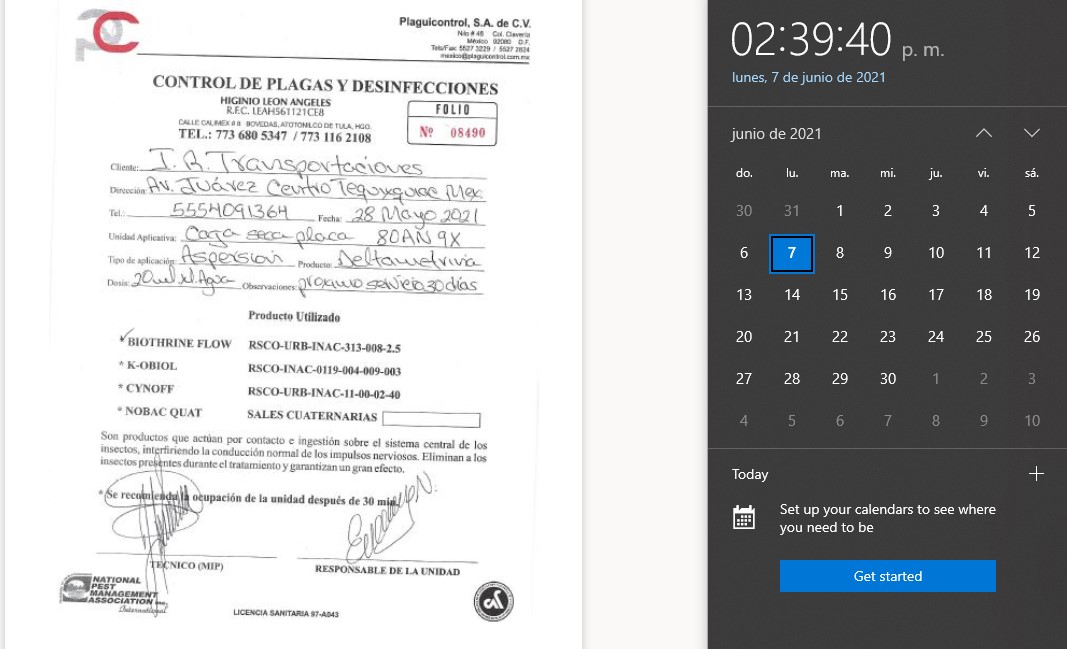 PC
Plaguicontrol, S.A. de C.V.
Nilo # 48 Col. Clavería
México 02080 D.F.
Tels/Fax: 5527 3229 / 5527 2824
mexico@plaguicontrol.com.mx
CONTROL DE PLAGAS Y DESINFECCIONES
HIGINIO LEON ANGELES
R.F.C. LEAH561121CE8
CALLE CALIMEX # 8 BOVEDAS, ATOTONILCO DE TULA, HGO.
TEL.: 773 680 5347 / 773 116 2108
FOLIO
Nº 08490
Cliente: I.R. Transportaciones
Dirección: Av. Juárez Centro Tequixquiac Mex
Tel.: 5554091364 Fecha: 28 Mayo 2021
Unidad Aplicativa: Caja seca placa 80AN9X
Tipo de aplicación: Aspersion Producto: Deltametrivia
Dosis: 20ml xl Agua Observaciones: proximo servicio 30 días
Producto Utilizado
✓BIOTHRINE FLOW RSCO-URB-INAC-313-008-2.5
* K-OBIOL RSCO-INAC-0119-004-009-003
* CYNOFF RSCO-URB-INAC-11-00-02-40
* NOBAC QUAT SALES CUATERNARIAS
Son productos que actúan por contacto e ingestión sobre el sistema central de los
insectos, interfiriendo la conducción normal de los impulsos nerviosos. Eliminan a los
insectos presentes durante el tratamiento y garantizan un gran efecto.
* Se recomienda la ocupación de la unidad después de 30 min.
TECNICO (MIP)
RESPONSABLE DE LA UNIDAD
NATIONAL
PEST
MANAGEMENT
ASSOCIATION Inc.
International
LICENCIA SANITARIA 97-A043
02:39:40 p. m.
lunes, 7 de junio de 2021
junio de 2021
do. lu. ma. mi. ju. vi. sá.
30 31 1 2 3 4 5
6 7 8 9 10 11 12
13 14 15 16 17 18 19
20 21 22 23 24 25 26
27 28 29 30 1 2 3
4 5 6 7 8 9 10
Today
Set up your calendars to see where
you need to be
Get started